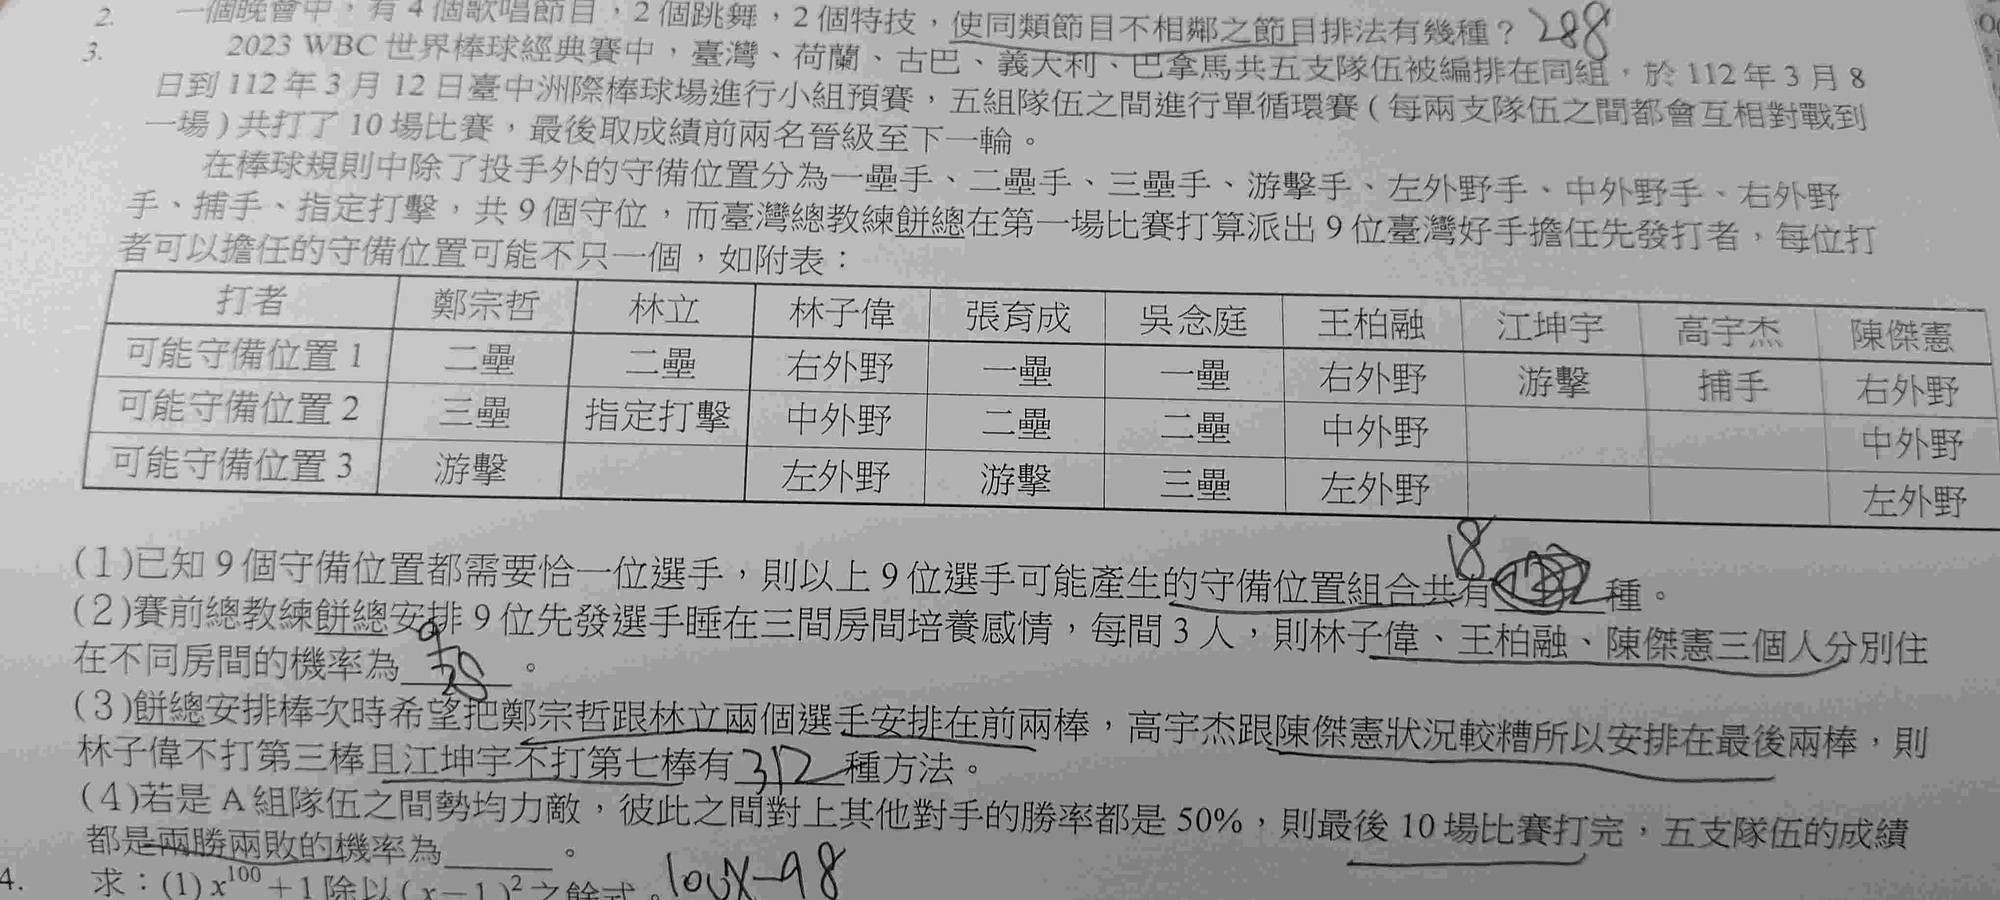 2. 一個晚會中，有4個歌唱節目，2個跳舞，2個特技，使同類節目不相鄰之節目排法有幾種？288
3. 2023 WBC 世界棒球經典賽中，臺灣、荷蘭、古巴、義大利、巴拿馬共五支隊伍被編排在同組，於112年3月8
日到112年3月12日臺中洲際棒球場進行小組預賽，五組隊伍之間進行單循環賽(每兩支隊伍之間都會互相對戰到
一場)共打了10場比賽，最後取成績前兩名晉級至下一輪。
在棒球規則中除了投手外的守備位置分為一壘手、二壘手、三壘手、游擊手、左外野手、中外野手、右外野
手、捕手、指定打擊，共9個守位，而臺灣總教練餅總在第一場比賽打算派出9位臺灣好手擔任先發打者，每位打
者可以擔任的守備位置可能不只一個，如附表：
打者 鄭宗哲 林立 林子偉 張育成 吳念庭 王柏融 江坤宇 高宇杰 陳傑憲
可能守備位置1 二壘 二壘 右外野 一壘 一壘 右外野 游擊 捕手 右外野
可能守備位置2 三壘 指定打擊 中外野 二壘 二壘 中外野 中外野
可能守備位置3 游擊 左外野 游擊 三壘 左外野 左外野
(1)已知9個守備位置都需要恰一位選手，則以上9位選手可能產生的守備位置組合共有18種。
(2)賽前總教練餅總安排9位先發選手睡在三間房間培養感情，每間3人，則林子偉、王柏融、陳傑憲三個人分別住
在不同房間的機率為 9/28 。
(3)餅總安排棒次時希望把鄭宗哲跟林立兩個選手安排在前兩棒，高宇杰跟陳傑憲狀況較糟所以安排在最後兩棒，則
林子偉不打第三棒且江坤宇不打第七棒有312種方法。
(4)若是A組隊伍之間勢均力敵，彼此之間對上其他對手的勝率都是50%，則最後10場比賽打完，五支隊伍的成績
都是兩勝兩敗的機率為______。
4. 求：(1) x¹⁰⁰+1除以(x−1)²之餘式。100x-98